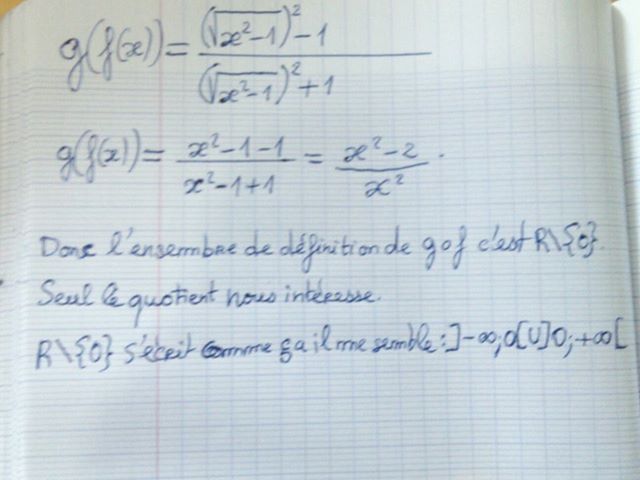 g(f(x)) = (√x²-1)² - 1 / (√x²-1)² + 1
g(f(x)) = x²-1-1 / x²-1+1 = x²-2 / x² .
Donc l'ensembre de définition de gof c'est R\{0}.
Seul le quotient nous intéresse.
R\{0} s'écrit comme ça il me semble : ]-∞;0[U]0;+∞[